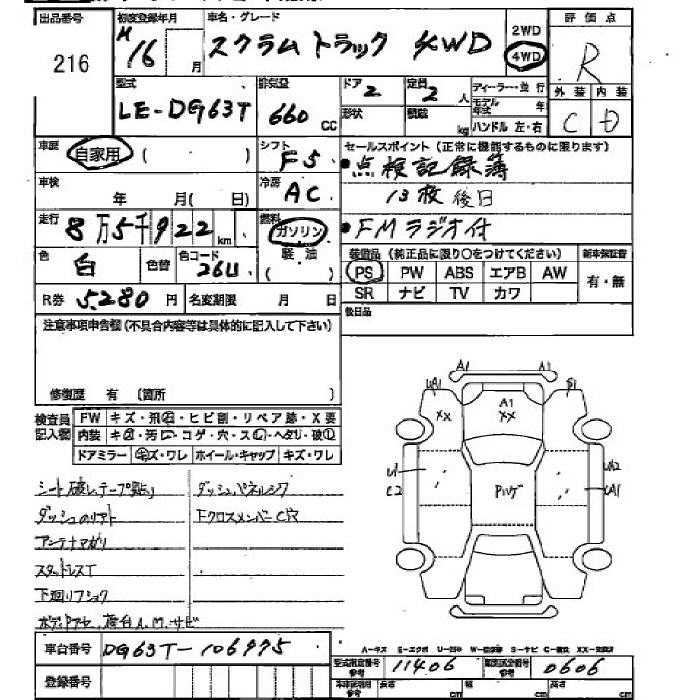 出品番号 初度登録年月 車名・グレード 2WD 評価点
216 H16 月 スクラムトラック 4WD 4WD R
型式 排気量 ドア 定員 ディーラー・並行 外装 内装
LE-DG63T 660 CC 2 2 人 モデル年式 年 C D
形状 積載 kg ハンドル 左・右
車歴 自家用 ( ) シフト F5 セールスポイント (正常に機能するものに限ります)
車検 年 月( 日) 冷房 AC ・点検記録簿
13枚後日
走行 8万5千922 km 燃料 ガソリン ・FMラジオ付
軽油 ( )
色 白 色替 色コード 26U 装備品 (純正品に限り○をつけてください) 新車保証書
PS PW ABS エアB AW 有・無
R券 5,280 円 名変期限 月 日 SR ナビ TV カワ
注意事項申告欄 (不具合内容等は具体的に記入して下さい) 後日品
修復歴 有 〔箇所 〕
検査員記入欄 FW キズ・飛石・ヒビ割・リペア跡・X要
内装 キズ・汚レ・コゲ・穴・スレ・ヘタリ・破レ
ドアミラー キズ・ワレ ホイール・キャップ キズ・ワレ
A1 A1
A1 S1
XX XX
U1 C2 Pハゲ
シート破レ、テープ貼り ダッシュパネルシワ
FクロスメンバーC穴
アンテナマガリ
スタットレスT
下廻リフショク
荷台A.M.サビ
車台番号 DG63T-106975
A-キズ E-エクボ U-凹
型式指定番号 参考 11406 類別区分番号 参考 0606
登録番号 参考 長さ cm 幅 cm 高さ cm